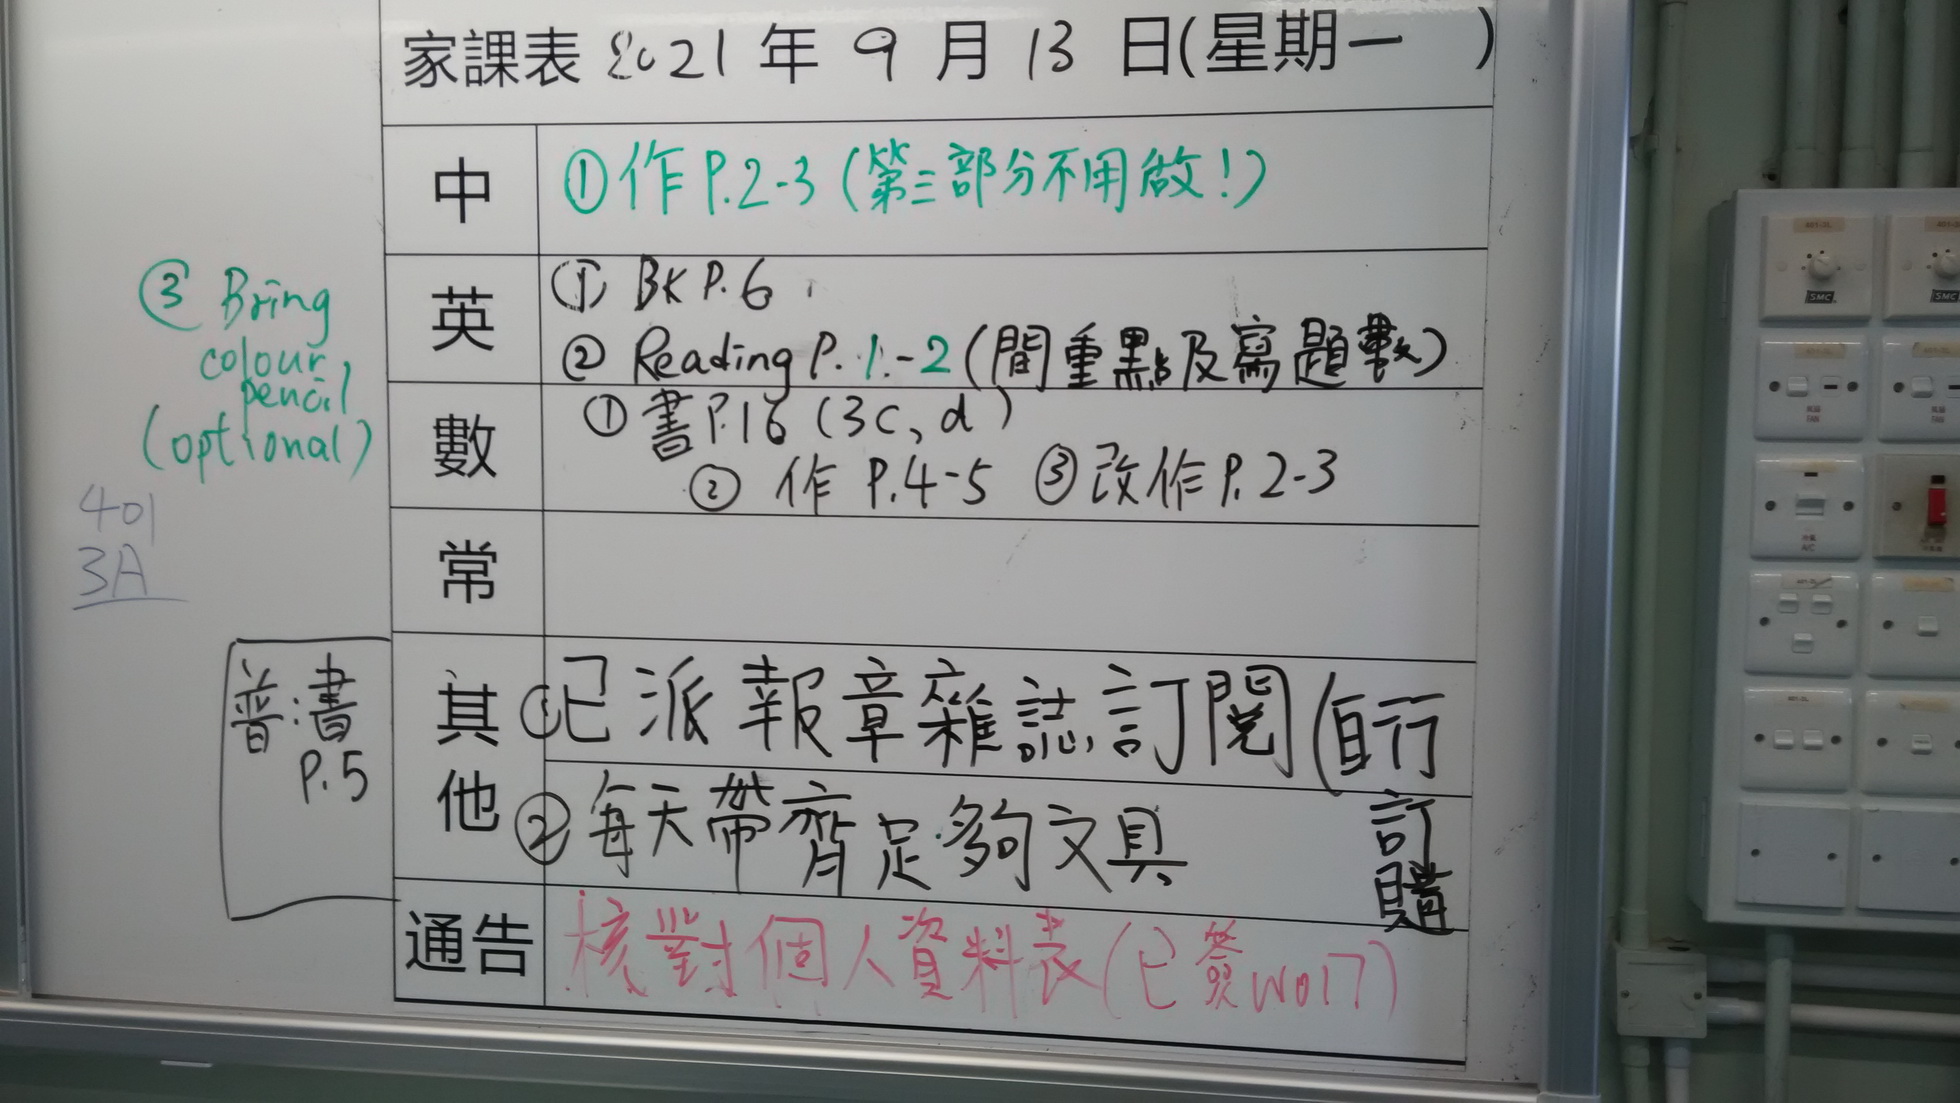 家課表 2021 年 9 月 13 日(星期一 )
中
①作P.2-3(第三部分不用做!)
英
① BK P.6
② Reading P.1-2(間重點及寫題數)
③ Bring
colour
pencil
(optional)
數
①書P.16 (3c, d)
② 作 P.4-5 ③改作P.2-3
401
3A
常
其他
①已派報章雜誌訂閱(自行
訂購
②每天帶齊足夠文具
普:書
P.5
通告
核對個人資料表(已簽W017)
SMC
SMC
FAN
FAN
A/C